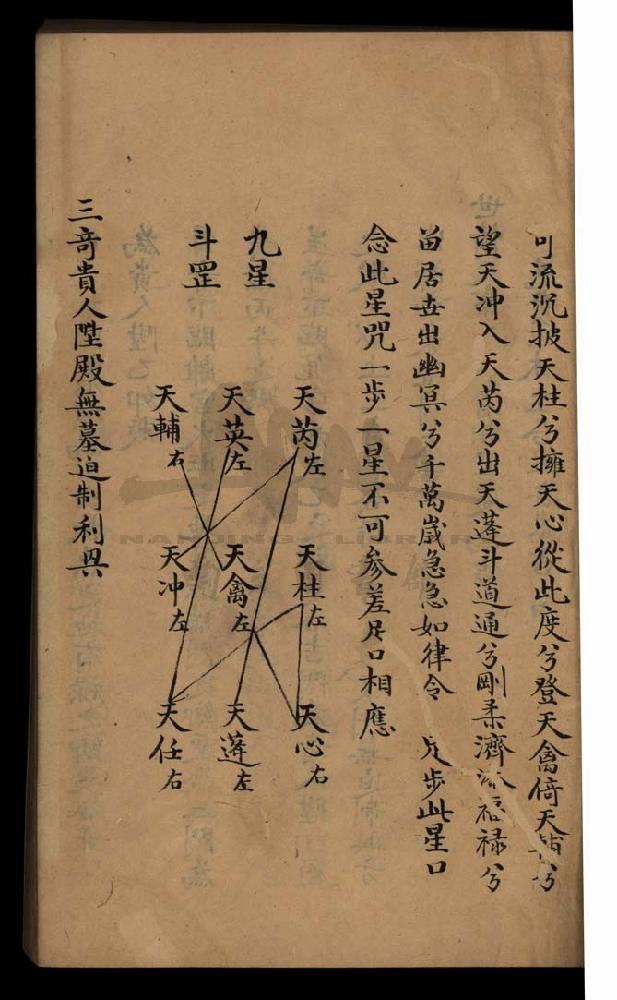 可流沉披天柱兮擁天心從此度兮登天禽倚天輔兮
望天冲入天芮兮出天蓬斗道通兮剛柔濟 福禄兮
留居壺出幽冥兮千萬歲急急如律令 凡步此星口
念此星咒一步一星不可参差足口相應
九星
斗罡
天芮左
天英左
天輔右
天柱左
天禽左
天冲左
天心右
天蓬左
天任右
三奇貴人陞殿無墓迫制利
NANJING LIBRARY